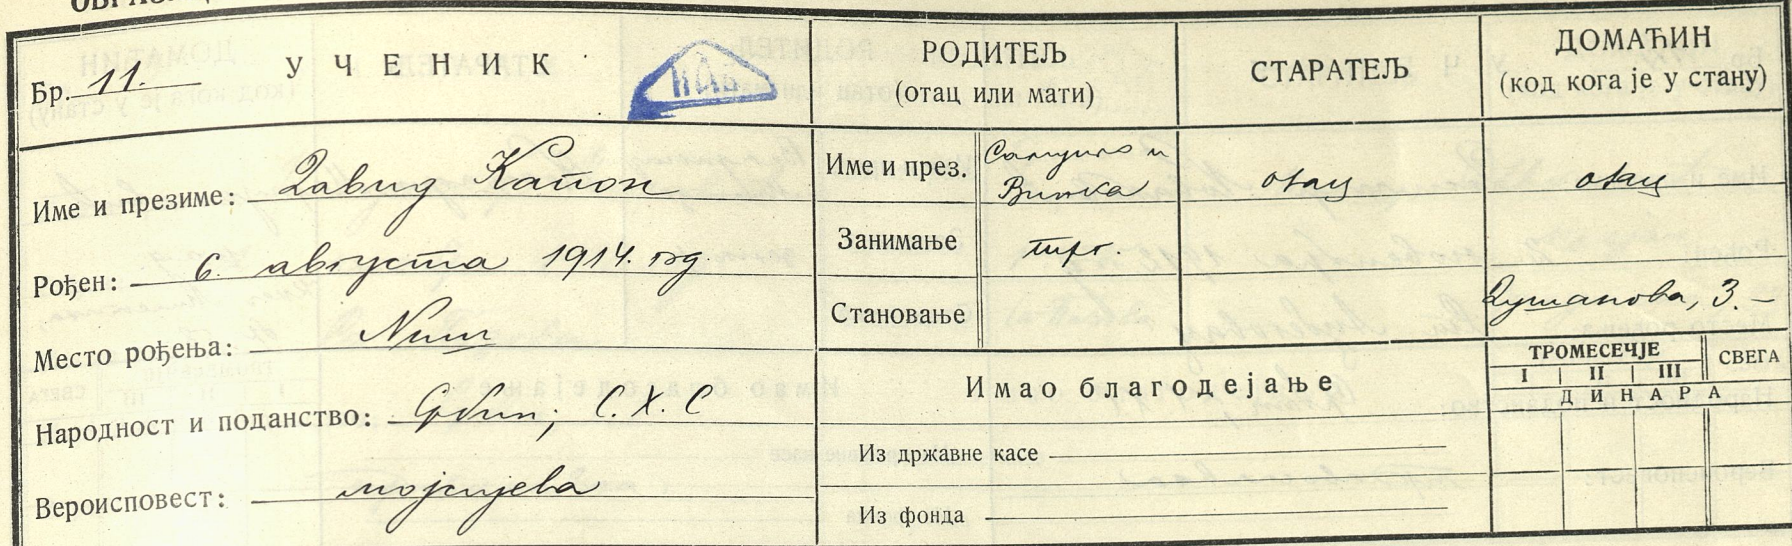 Бр. 11. УЧЕНИК
РОДИТЕЉ
(отац или мати)
СТАРАТЕЉ
ДОМАЋИН
(код кога је у стану)
Име и презиме: Давид Капон
Рођен: 6. августа 1914. год.
Место рођења: Ниш
Народност и поданство: Србин, С.Х.С
Вероисповест: мојсијева
Име и през. и
Винка
отац
отац
Занимање трг.
Становање
Душанова, 3.–
Имао благодејање
Из државне касе
Из фонда
ТРОМЕСЕЧЈЕ СВЕГА
I II III
ДИНАРА